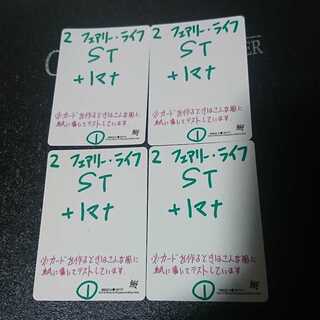 2 フェアリー・ライフ
ST
+1マナ
※カードを作るときはこんな風に
紙に書いてテストしています
1
2 フェアリー・ライフ
ST
+1マナ
※カードを作るときはこんな風に
紙に書いてテストしています
1
2 フェアリー・ライフ
ST
+1マナ
※カードを作るときはこんな風に
紙に書いてテストしています
1
2 フェアリー・ライフ
ST
+1マナ
※カードを作るときはこんな風に
紙に書いてテストしています
1